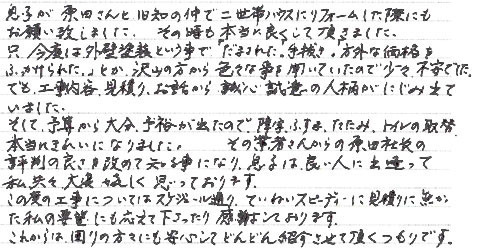 息子が原田さんと旧知の仲で二世帯ハウスにリフォームした際にも
お願い致しました。 その時も本当に良くして頂きました。
只、今度は外壁塗装という事で「だまされた。手抜き。方外な価格を
ふっかけられた。」とか、沢山の方から色々な事を聞いていたので少々不安でした。
でも、工事内容、見積り、お話から 誠心誠意の人柄がにじみ出て
いました。
そして、予算から大分、予裕が出たので、障子、ふすま、たたみ、トイレの取替
本当にきれいになりました。 その業者さんからの原田社長の
評判の良さを改めて知る事になり、息子は良い人に出逢って
私共々大変嬉しく思っております。
この度の工事についてはスケジュール通り、ていねいスピーディーに見積りに無かっ
た私の要望にも応えて下さったり 感謝しております。
これからは、周りの方々にも安心してどんどん紹介させて頂くつもりです。